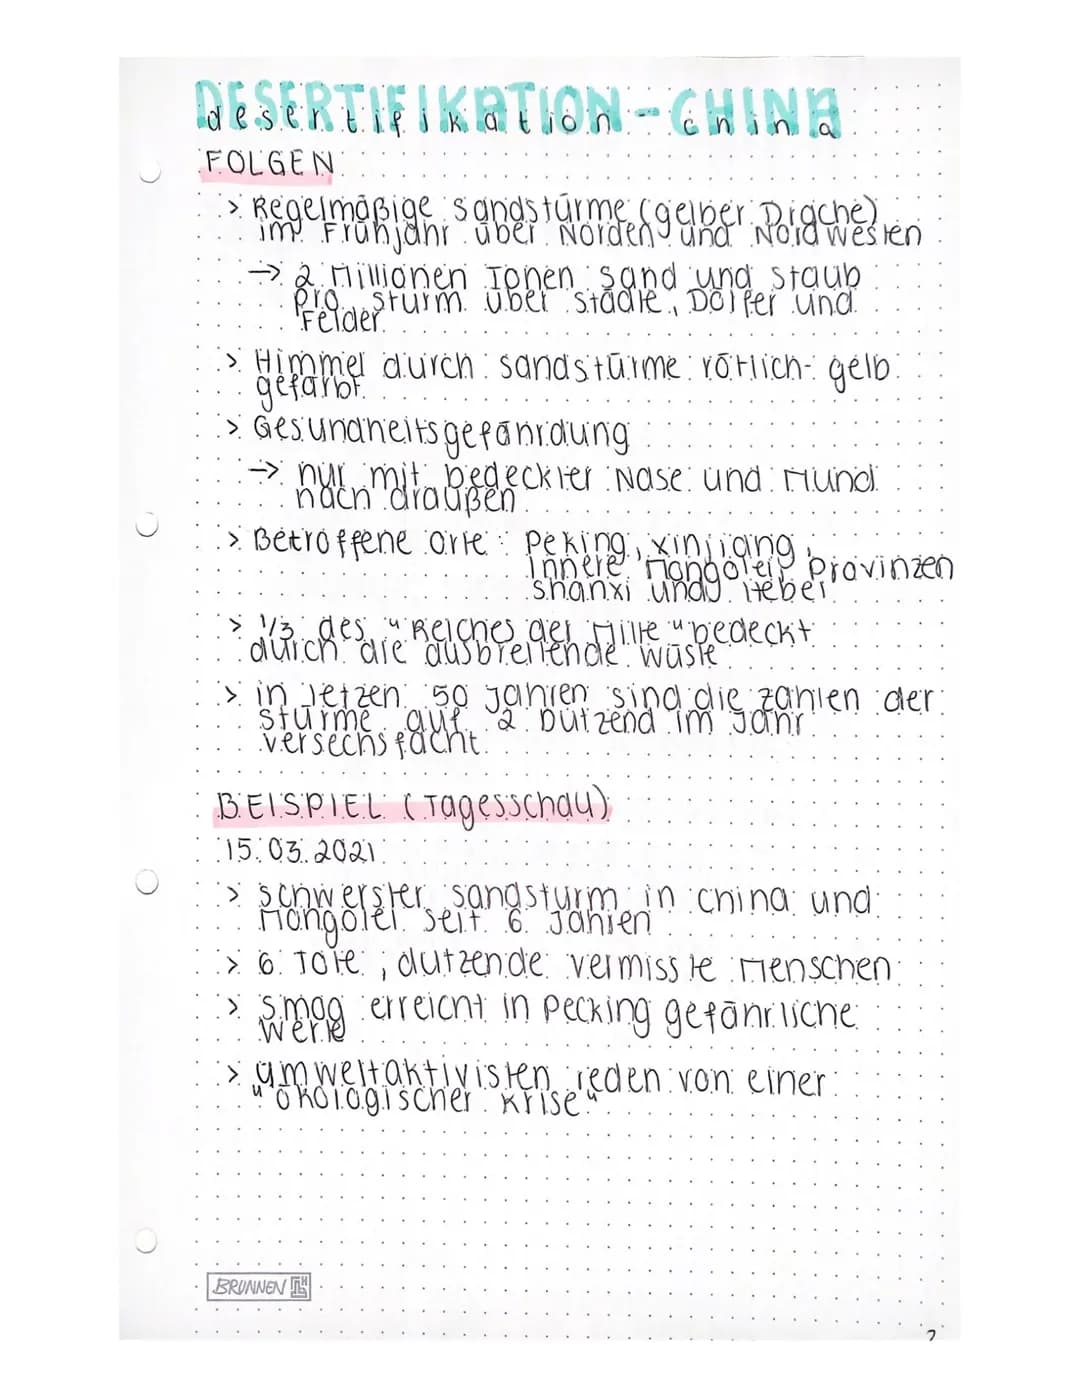 DESERTIFIKATION - CHINA
desertifikation - china
FOLGEN
> Regelmäßige Sandstürme (gelber Drache)
im Frühjahr über Norden und Nordwesten
→ 2 Millionen Tonen Sand und Staub
pro Sturm über Städte, Dörfer und
Felder
> Himmel durch Sandstürme rötlich-gelb
gefärbt
> Gesundheitsgefährdung
→ nur mit bedeckter Nase und Mund
nach draußen
> Betroffene Orte: Peking, Xinjiang,
Innere Mongolei, Provinzen
Shanxi und Hebei
> 1/3 des "Reiches der Mitte" bedeckt
durch die ausbreitende Wüste
> in letzen 50 Jahren sind die Zahlen der
Stürme auf 2 Dutzend im Jahr
versechsfacht
BEISPIEL (Tagesschau)
15.03.2021
> schwerster Sandsturm in China und
Mongolei seit 6 Jahren
> 6 Tote, dutzende vermisste Menschen
> Smog erreicht in Pecking gefährliche
Werte
> Umweltaktivisten reden von einer
"ökologischer Krise"
BRUNNEN
2